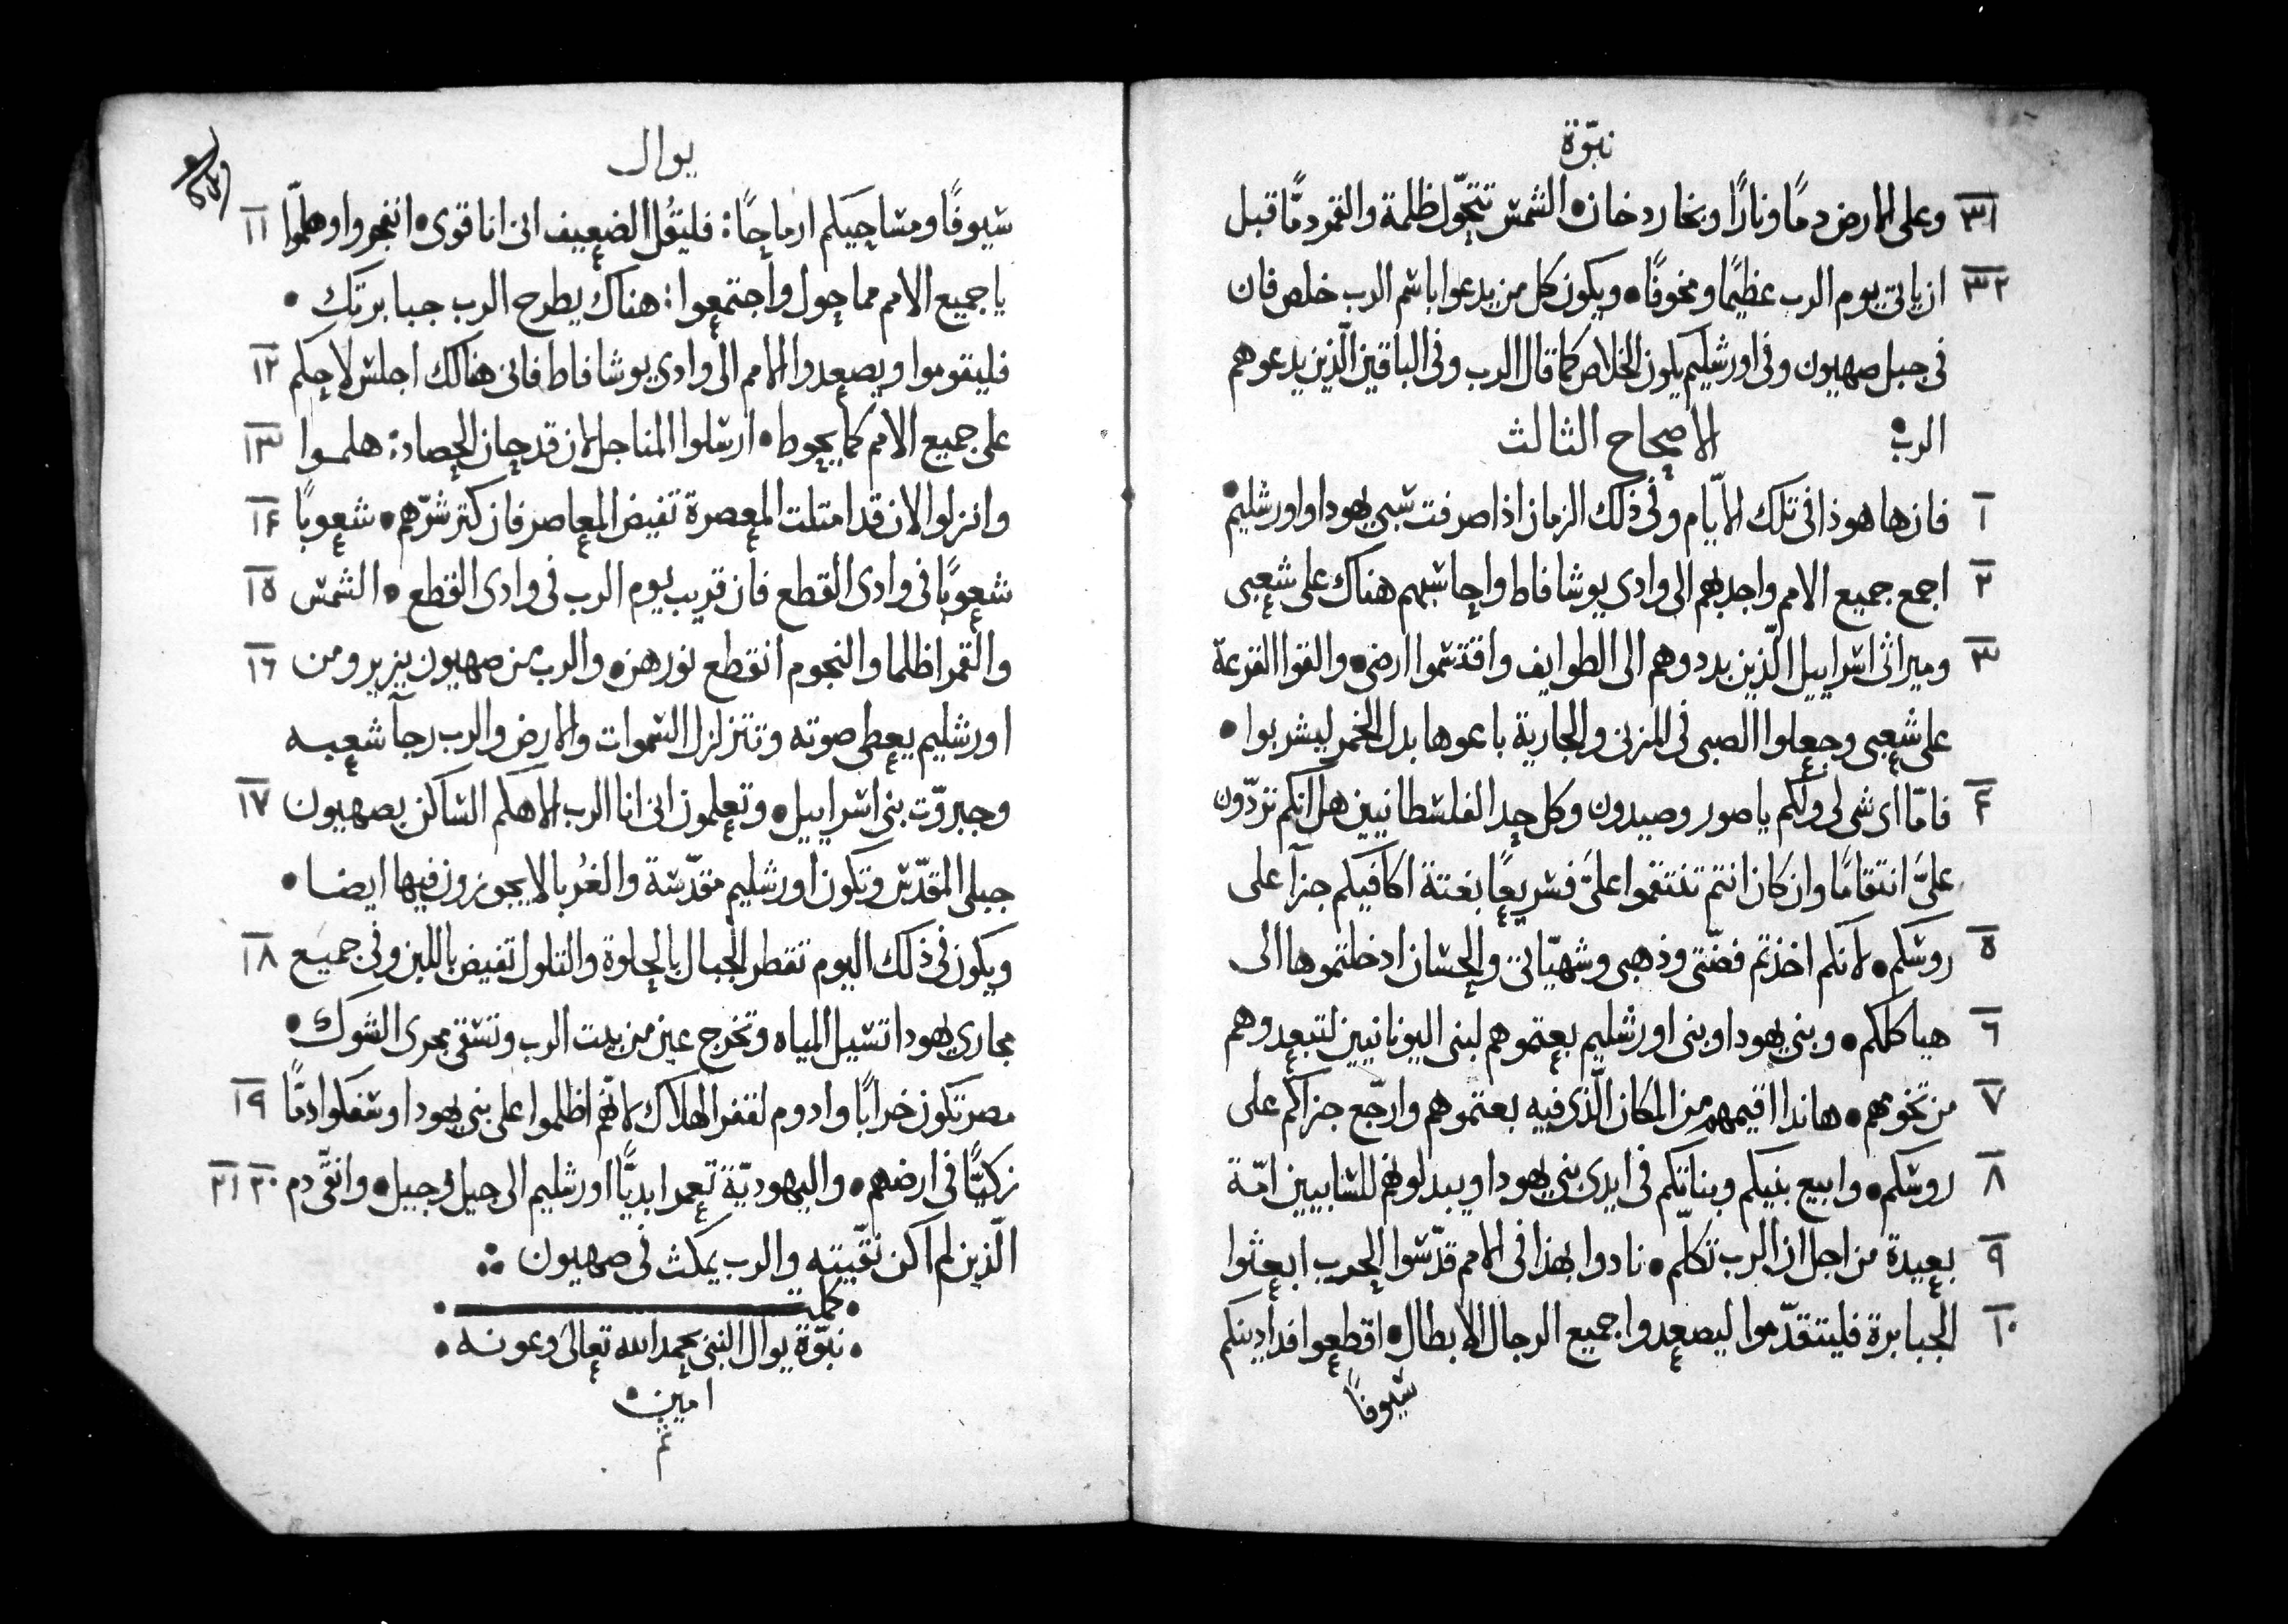 نبوّة
٣١ وعلى الارض دمًا ونارًا وبخار دخان • الشمس تتحوّل ظلمة والقمر دمًّا قبل
٣٢ ان ياتي يوم الرب عظيمًا ومخوفًا • ويكون كل من يدعوا باسم الرب خلص فان
في جبل صهيون وفي اورشليم يكون الخلاص كما قال الرب وفي الباقين الّذين يدعوهم
الرب • الاصحاح الثالث
١ فان ها هوذا في تلك الايّام وفي ذلك الزمان اذا صرفت سبي يهودا واورشليم •
٢ اجمع جميع الامم واجدبهم الى وادي يوشافاط واحاسبهم هناك على شعبي
٣ وميراثي اسراييل الّذين بددوهم الى الطوايف واقتسموا ارضي • والقوا القرعة
على شعبي وجعلوا الصبي في المزنى والجارية باعوها بدل الخمر ليشربوا •
٤ فامّا اى شى لي ولكم يا صور وصيدون وكل حد الفلسطانيين هل انكم تردّون
عليَّ انتقامًا وان كان انتم تنتقموا عليَّ فسريعًا بغتة اكافيكم جزآ على
٥ روسكم • لانكم اخذتم فضّتي وذهبي وشهيّاتي والحسان ادخلتموها الى
٦ هياكلكم • وبني يهودا وبني اورشليم بعتموهم لبني اليونانيين لتبعدوهم
٧ من تخومهم • هانذا اقيمهم من المكان الّذي فيه بعتموهم وارجّع جزاكم على
٨ روسكم • وابيع بنيكم وبناتكم في ايدي بني يهودا ويبدلوهم للسابيين امّة
٩ بعيدة من اجل ان الرب تكلّم • نادوا بهذا في الامم قدّسوا الحرب ابعثوا
١٠ الجبابرة فليتقدّموا ليصعدوا جميع الرجال الابطال • اقطعوا فدادينكم
سيوفًا
يوال
سيوفًا ومساحيكم ارماحًا : فليقُل الضعيف اني انا قوى • انفجروا وهلمّوا ١١
يا جميع الامم مما حول واجتمعوا : هناك يطرح الرب جبابرتك •
فليقوموا ويصعدوا الامم الى وادي يوشافاط فاني هنالك اجلس لاحكم ١٢
على جميع الامم كما يحوط • ارسلوا المناجل لان قد حان الحصاد : هلمـوا ١٣
وانزلوا لان قد امتلت المعصرة تفيض المعاصر فان كثر شرّهم • شعوبًا ١٤
شعوبًا في وادى القطع فان قريب يوم الرب في وادى القطع • الشمس ١٥
والقمر اظلما والنجوم انقطع نورهن • والرب من صهيون يزير ومن ١٦
اورشليم يعطي صوته وتتزلزل السموات والارض والرب رجآ شعبـه
وجبروّت بني اسراييل • وتعلمون اني انا الرب الاهكم الساكن بصهيون ١٧
جبلي المقدّس وتكون اورشليم مقدّسة والغُربا لا يجوزون فيها ايضـا •
ويكون في ذلك اليوم تقطر الجبال بالحلاوة والتلول تفيض باللبن وفي جميع ١٨
مجاري يهودا تسيل المياه وتخرج عين من بيت الرب وتسقي مجرى الشوك •
مصر تكون خرابًا وادوم لقفر الهلاك لانّهم اظلموا على بني يهودا وسفكوا دمًّا ١٩
زكيًّا في ارضهم • واليهوديّة تعمر ابديًّا اورشليم الى جيل وجيل • وانقّي دم ٢٠ ٢١
الّذين لم اكن نقّيته والرب يمكث في صهيون
كملت
نبوّة يوال النبي بحمد الله تعالى وعونه
امين